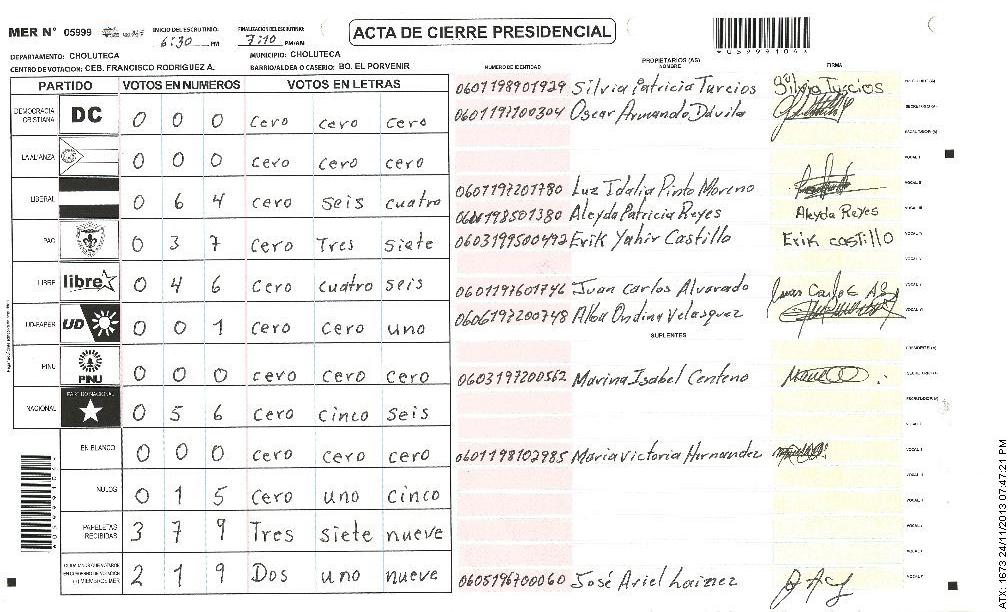 MER N° 05999 INICIO DEL ESCRUTINIO: 6:30 PM FINALIZACION DEL ESCRUTINIO: 7:10 PM/AM ACTA DE CIERRE PRESIDENCIAL
DEPARTAMENTO: CHOLUTECA MUNICIPIO: CHOLUTECA
CENTRO DE VOTACION: CEB. FRANCISCO RODRIGUEZ A. BARRIO/ALDEA O CASERIO: BO. EL PORVENIR
NUMERO DE IDENTIDAD PROPIETARIOS (AS) NOMBRE FIRMA
PARTIDO VOTOS EN NUMEROS VOTOS EN LETRAS
0601198901929 Silvia Patricia Turcios Silvia Turcios
DEMOCRACIA CRISTIANA DC 0 0 0 cero cero cero
0601197200304 Oscar Armando Dávila
LA ALIANZA 0 0 0 cero cero cero
0601197201780 Luz Idalia Pinto Moreno
LIBERAL 0 6 4 cero seis cuatro
198501380 Aleyda Patricia Reyes Aleyda Reyes
PAC 0 3 7 Cero Tres siete
0603199500492 Erik Yahir Castillo Erik castillo
LIBRE libre 0 4 6 Cero cuatro seis
0601197601746 Juan Carlos Alvarado
UD-FAPER UD 0 0 1 Cero Cero uno
0606197200748 Alba Ondina Velasquez
SUPLENTES
PINU PINU 0 0 0 cero Cero Cero
0603197200562 Marina Isabel Centeno
NACIONAL PARTIDO NACIONAL 0 5 6 Cero cinco seis
EN BLANCO 0 0 0 Cero cero cero
0601198102985 Maria Victoria Hernandez
NULOS 0 1 5 Cero uno cinco
PAPELETAS RECIBIDAS 3 7 9 Tres siete nueve
2 1 9 Dos uno nueve
0605196700060 José Ariel Lainez
ATX: 1673 24/11/2013 07:47:21 PM